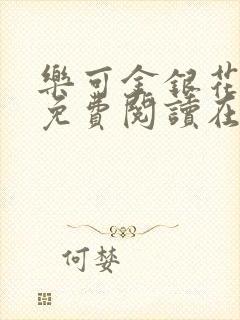 樂可金銀花
免費閱讀在
何婪